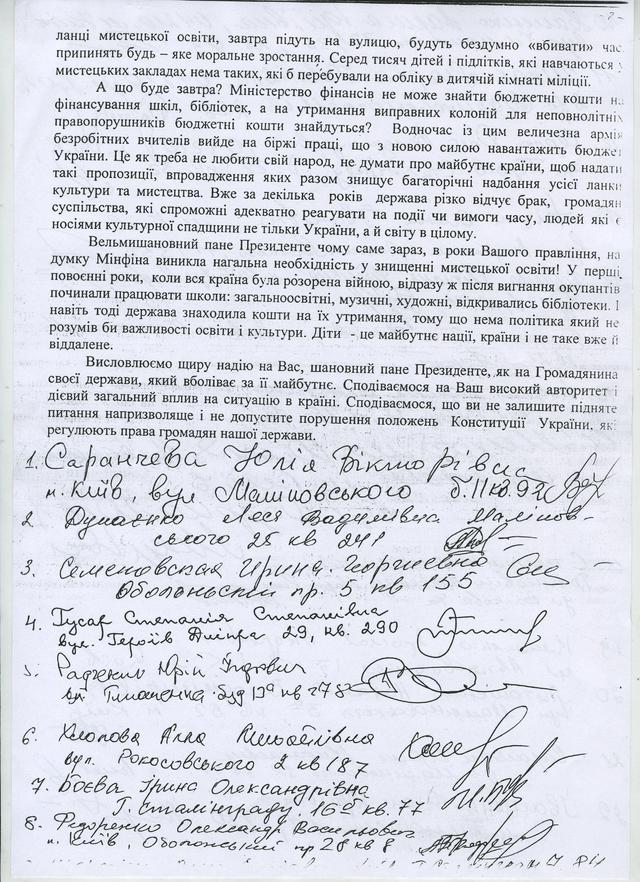 - 2 -
ланці мистецької освіти, завтра підуть на вулицю, будуть бездумно «вбивати» час,
припинять будь – яке моральне зростання. Серед тисяч дітей і підлітків, які навчаються у
мистецьких закладах нема таких, які б перебували на обліку в дитячій кімнаті міліції.
А що буде завтра? Міністерство фінансів не може знайти бюджетні кошти на
фінансування шкіл, бібліотек, а на утримання виправних колоній для неповнолітніх
правопорушників бюджетні кошти знайдуться? Водночас із цим величезна армія
безробітних вчителів вийде на біржі праці, що з новою силою навантажить бюджет
України. Це як треба не любити свій народ, не думати про майбутнє країни, щоб надати
такі пропозиції, впровадження яких разом знищує багаторічні надбання усієї ланки
культури та мистецтва. Вже за декілька років держава різко відчує брак, громадян
суспільства, які спроможні адекватно реагувати на події чи вимоги часу, людей які є
носіями культурної спадщини не тільки України, а й світу в цілому.
Вельмишановний пане Президенте чому саме зараз, в роки Вашого правління, на
думку Мінфіна виникла нагальна необхідність у знищенні мистецької освіти! У перші
повоєнні роки, коли вся країна була розорена війною, відразу ж після вигнання окупантів
починали працювати школи: загальноосвітні, музичні, художні, відкривались бібліотеки. І
навіть тоді держава знаходила кошти на їх утримання, тому що нема політика який не
розумів би важливості освіти і культури. Діти - це майбутнє нації, країни і не таке вже й
віддалене.
Висловлюємо щиру надію на Вас, шановний пане Президенте, як на Громадянина
своєї держави, який вболіває за її майбутнє. Сподіваємося на Ваш високий авторитет і
дієвий загальний вплив на ситуацію в країні. Сподіваємося, що ви не залишите підняте
питання напризволяще і не допустите порушення положень Конституції України, які
регулюють права громадян нашої держави.
1. Саранчева Юлія Вікторівна
м. Київ, вул. Маліновського б. 11 кв. 92
2 Дунаєнко Леся Вадимівна Малінов-
ського 25 кв 241
3. Семеновская Ирина Георгиевна
Оболоньский пр. 5 кв 155
4. Гусар Степанія Степанівна
вул. Героїв Дніпра 29, кв. 290
5. Юрій
вул Тимошенка буд 13а кв 278
6. Хлопова Алла Михайлівна
вул. Рокосовського 2 кв 187
7. Боєва Ірина Олександрівна
Г. Сталінграду 16б кв. 77
8. Федоренко Олександр Васильович
м. Київ, Оболонський пр 28 кв 8